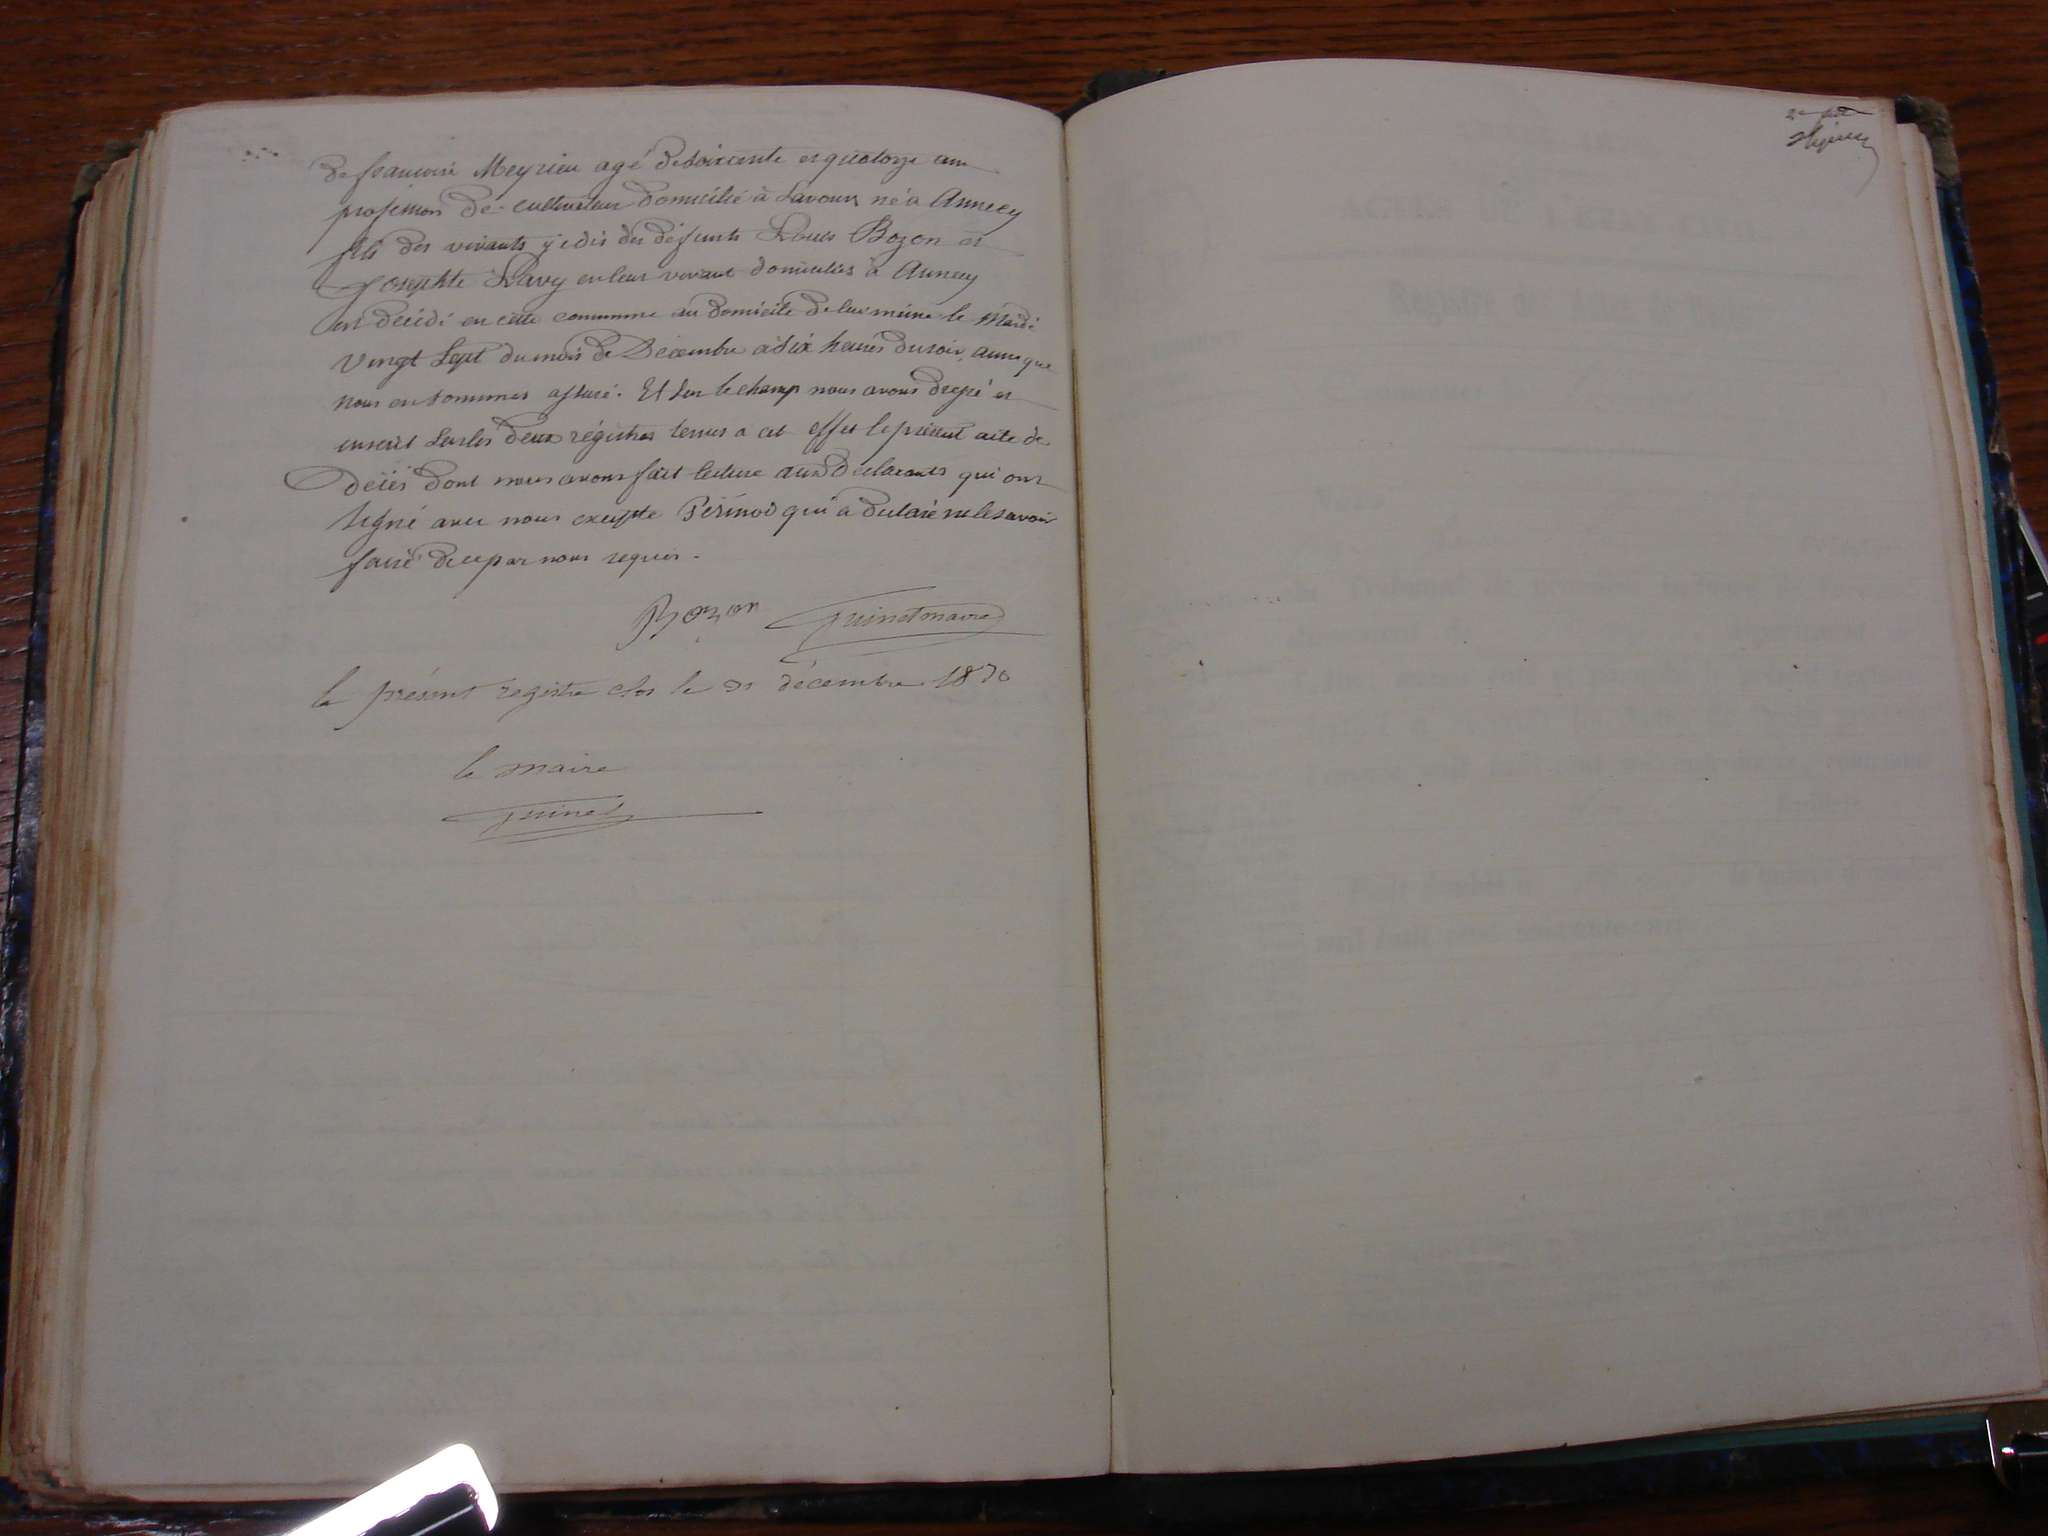 de francoise Meyrieu agé de soixcente et quatorze ans
profession de cultivateur domicilié à Lavours né à Annecy
fils des vivants jédis des défunts Louis Bozon et
Josephte Lavy en leur vivant domiciliés à Annecy
est décédé en cette commune au domicile de lui même le Mardi
vingt Sept du mois de Décembre à six heures du soir, ainsi que
nous en sommes assuré. Et sur le champ nous avons dressé et
inscrit sur les deux régistres tenus a cet effet le présent acte de
décès dont nous avons fait lecture aux Déclarants qui ont
signé avec nous excepte Périnod qui a declaré ne le savoir
faire de ce par nous requis.
Bozon Guinet maire
le présent registre clos le 31 décembre 1870
le maire
Guinet